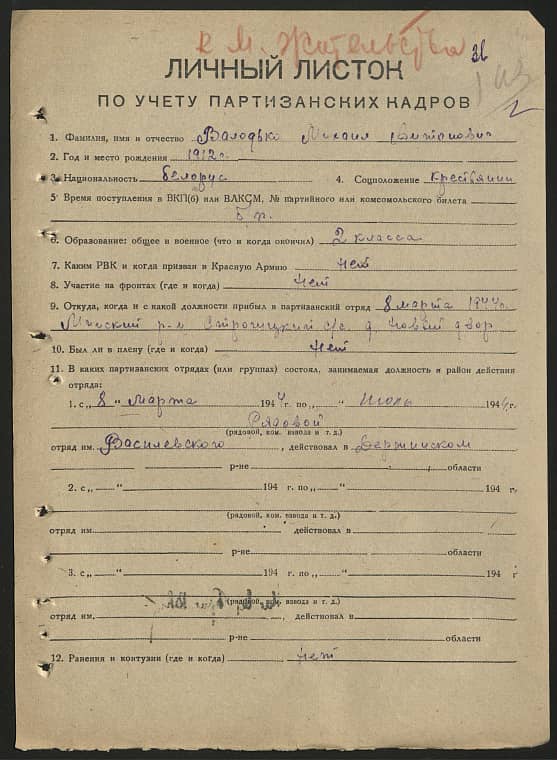 к м. жительства
ЛИЧНЫЙ ЛИСТОК
ПО УЧЕТУ ПАРТИЗАНСКИХ КАДРОВ
1. Фамилия, имя и отчество Валодько Михаил Антонович
2. Год и место рождения 1912 г.
3. Национальность белорус 4. Соцположение крестьянин
5. Время поступления в ВКП(б) или ВЛКСМ, № партийного или комсомольского билета
б/п.
6. Образование: общее и военное (что и когда окончил) 2 класса
7. Каким РВК и когда призван в Красную Армию нет
8. Участие на фронтах (где и когда) нет
9. Откуда, когда и с какой должности прибыл в партизанский отряд 8 марта 1944 г.
Минский р-н с/с д. Новый двор
10. Был ли в плену (где и когда) нет
11. В каких партизанских отрядах (или группах) состоял, занимаемая должность и район действия
отряда:
1. с „ 8 “ марта 1944 г. по „ “ июль 1944 г.
Рядовой
(рядовой, ком. взвода и т. д.)
отряд им. Василевского, действовал в Держинском
р-не области
2. с „ “ 194 г. по „ “ 194 г.
(рядовой, ком. взвода и т. д.)
отряд им. действовал в
р-не области
3. с „ “ 194 г. по „ “ 194 г.
(рядовой, ком. взвода и т. д.)
отряд им. , действовал в
р-не области
12. Ранения и контузии (где и когда) нет